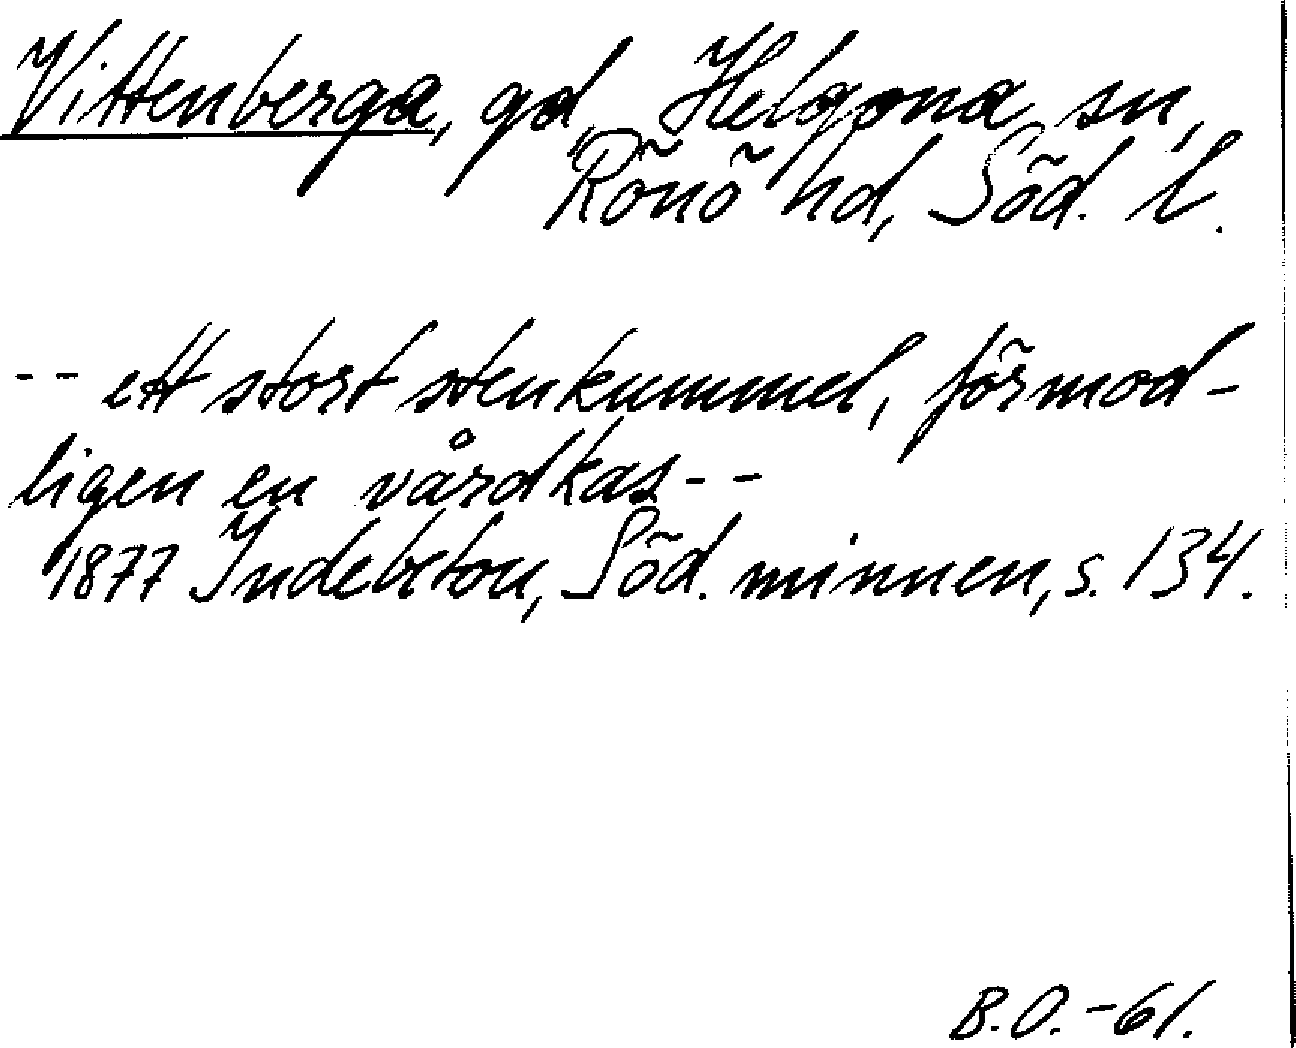 Vittenberga, gd, Helgona sn,
Rönö hd, Söd. l.
-- ett stort stenkummel, förmod-
ligen en vårdkas--
1877 Indebetou, Söd. minnen, s. 134.
B.O.-61.